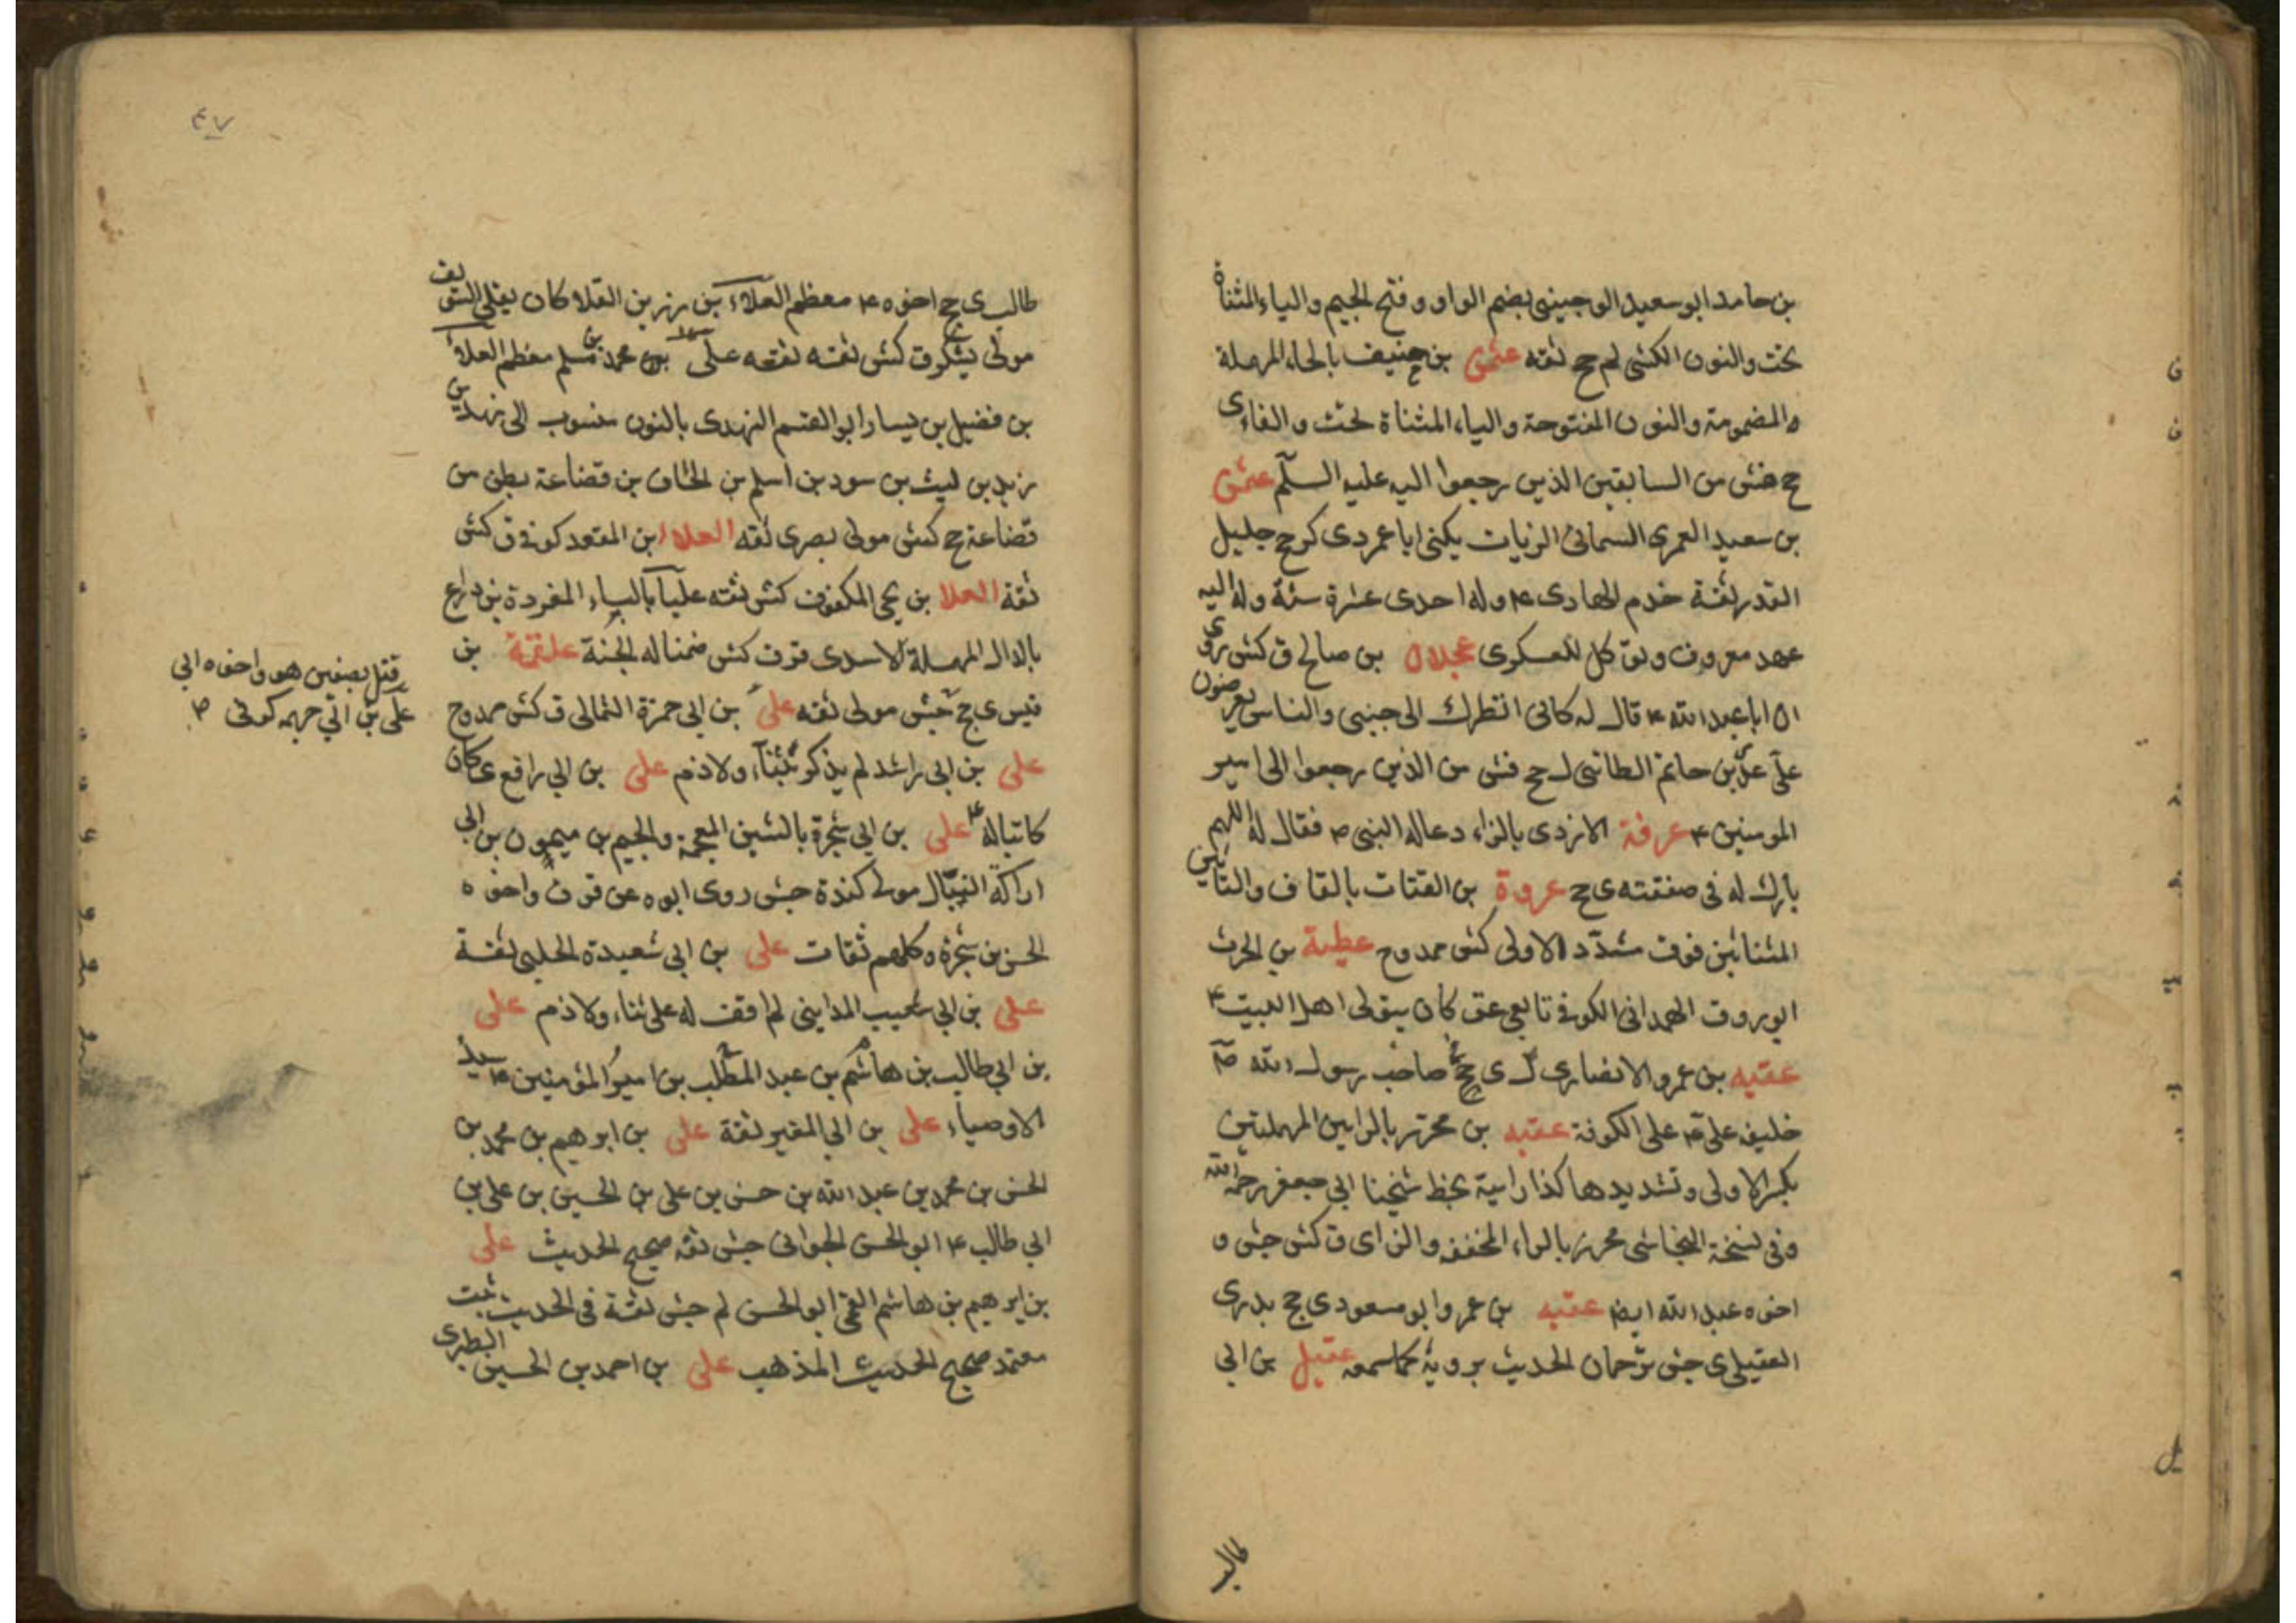 بن حامد ابو سعيد الوجينى بضم الواو وفتح الجيم والياء المثناة
تحت والنون الكشى لم جح ثقه عثمن بن حنيف بالحاء المهملة
المضمومة والنون المفتوحة والياء المثناة تحت والفاء ى
جح كش من السابقين الذين رجعوا اليه عليه السلم عثمن
بن سعيد العمرى السمانى الزيات يكنى ابا عمر دى كر جح جليل
القدر ثقة خدم الهادى ع وله احدى عشرة سنة وله اليه
عهد معروف وتوكل للعسكرى عجلان بن صالح ق كش روى
ان ابا عبد الله ع قال له كانى انظرك الى جنبى والناس يعرضون
على عدى بن حاتم الطائى ل جح كش من الذين رجعوا الى امير
المومنين ع عرفة الازدى بالزاء دعا له النبى ص فقال له اللهم
بارك له فى صفقته ى جح عروة بن القتات بالقاف والتائين
المثنائين فوق مشدد الاولى كش ممدوح عطية بن الحرث
ابو روق الهمدانى الكوفى تابعى عق كان يتولى اهل البيت ع
عقبه بن عمرو الانصارى ل ى جح صاحب رسول الله ص
خليفه على ع على الكوفة عقبه بن محرز بالرايين المهملتين
بكسر الاولى وتشديدها كذا راسية بخط شيخنا ابى جعفر رحمه الله
وفى نسخة النجاشى محرز بالراء المخففه والزاى ق كش جش و
اخوه عبد الله ايضا عقبه بن عمرو ابو مسعود ى جح بدرى
العقيلى ى جش ترجمان الحديث يرويه كما سمعه عقيل بن ابى
طالب
٤٧
طالب ى جح اخوه ع معظم العلاء بن رزين القلا كان يقلى السويق
مولى يشكر ق كش ثقه ثقه على بن محمد بن مسلم معظم العلاء
بن فضيل بن يسار ابو القسم النهدى بالنون منسوب الى نهد بن
زيد بن ليث بن سود بن اسلم بن الحاف بن قضاعة بطن من
قضاعة جح كش مولى بصرى ثقه العلاء ابن المقعد كوفى ق كش
ثقة العلا بن يحيى المكفوف كش ثقه علباء بالباء المفردة بن دراع
بالدال المهملة الاسدى قر ق كش ضمنا له الجنة علقمة بن
قيس ى جح كش مولى ثقه على بن ابى حمزة الثمالى ق كش ممدوح
قتل بصفين هو واخوه ابى
على بن ابى جهمه كوفى
على بن ابى راشد لم يذكر بثناء ولا ذم على بن ابى رافع ى كان
كاتبا له ع على بن ابى شجرة بالشين المعجمة والجيم بن ميمون بن ابى
اراكة النبال مولى كندة جش روى ابوه عن قر ق واخوه
الحسن بن شجرة وكلهم ثقات على بن ابى شعبة الحلبى ثقة
على بن ابى شعيب المداينى لم اقف له على ثناء ولا ذم على
بن ابى طالب بن هاشم بن عبد المطلب بن امير المؤمنين ع سيد
الاوصياء على بن ابى المغير ثقة على بن ابرهيم بن محمد بن
الحسن بن محمد بن عبد الله بن حسن بن على بن الحسين بن على بن
ابى طالب ع ابو الحسن الجوانى جش ثقه صحيح الحديث على
بن ابرهيم بن هاشم القمى ابو الحسن لم جش ثقة فى الحديث ثبت
معتمد صحيح الحديث المذهب على بن احمد بن الحسين الطبرى